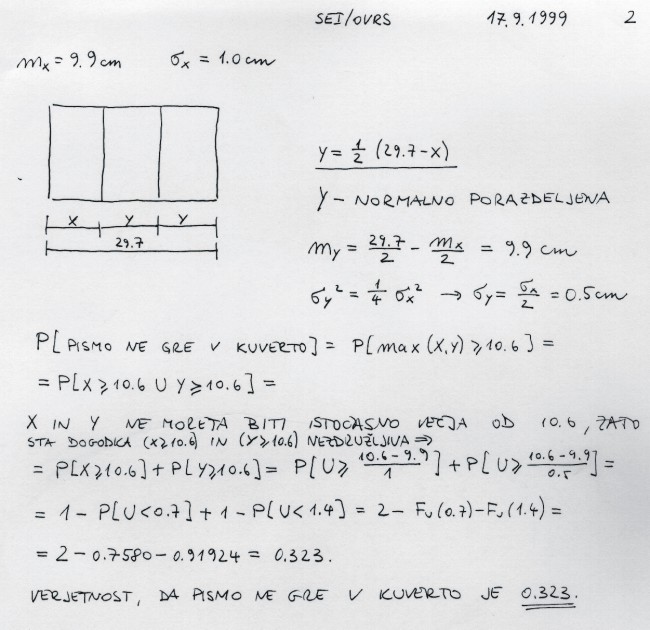 SEI/OVRS 17.9.1999 2
mx = 9.9 cm σx = 1.0 cm
Y = 1/2 (29.7 - X)
Y - NORMALNO PORAZDELJENA
X Y Y
29.7
my = 29.7/2 - mx/2 = 9.9 cm
σy² = 1/4 σx² → σy = σx/2 = 0.5 cm
P[PISMO NE GRE V KUVERTO] = P[max(X,Y) ⩾ 10.6] =
= P[X ⩾ 10.6 ∪ Y ⩾ 10.6] =
X IN Y NE MORETA BITI ISTOČASNO VEČJA OD 10.6, ZATO
STA DOGODKA (X⩾10.6) IN (Y⩾10.6) NEZDRUŽLJIVA ⇒
= P[X⩾10.6] + P[Y⩾10.6] = P[U ⩾ (10.6-9.9)/1] + P[U ⩾ (10.6-9.9)/0.5] =
= 1 - P[U<0.7] + 1 - P[U<1.4] = 2 - Fu(0.7) - Fu(1.4) =
= 2 - 0.7580 - 0.91924 = 0.323.
VERJETNOST, DA PISMO NE GRE V KUVERTO JE 0.323.